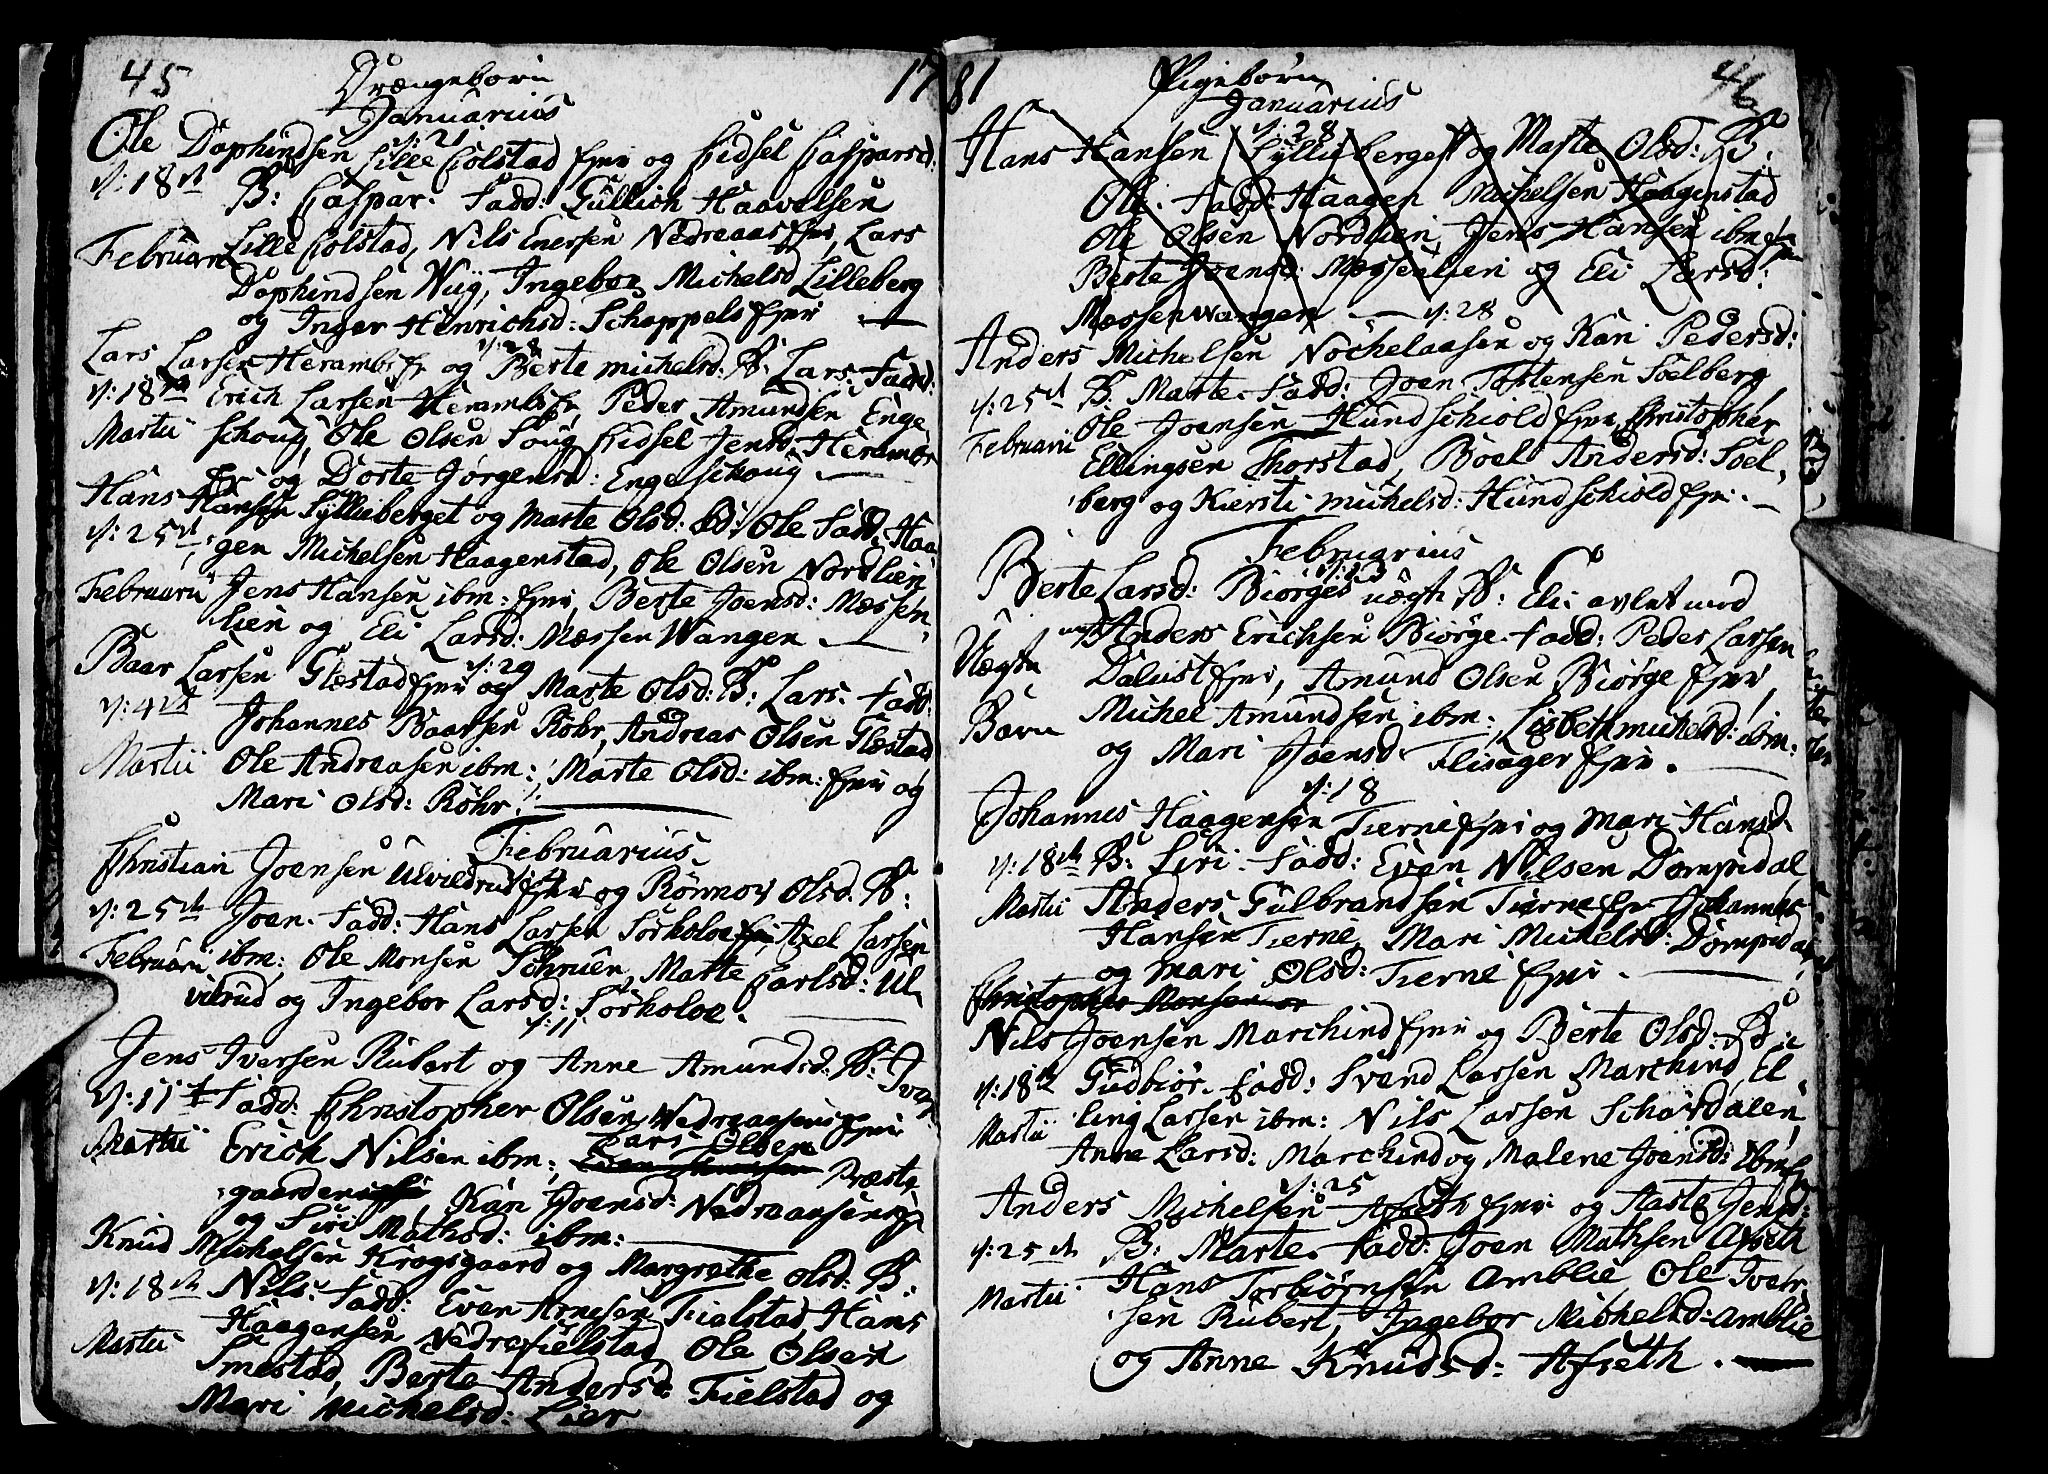 45 Drængebørn 17
Januarius
d: 21
Ole Daphindsen Lille Colstad fjer og Cidsel Casparsd:
d: 18de B: Caspar. Fadd: Gullich Haavelsen
Februarii Lille Colstad, Nils Enersen Nedreaas fjer, Lars
Daphindsen Wiig, Ingebor Michelsd Lilleberg
og Inger Henrichsd: Schappels fjer
d: 28
Lars Larsen Herambs fjr og Berte michelsd: B: Lars. Fadd:
d: 18de Erich Larsen Herambs fjr, Peder Amundsen Enge
Martii schoug, Ole Olsen Soug Cidsel Jensd: Herambs
fjr og Dorte Jørgensd: Engeschoug.
Hans Hansen Syllieberget og Marte Olsd: B: Ole Fadd: Haa
d: 25de gen Michelsen Haagenstad, Ole Olsen Nordlien
Februarii Jens Hansen ibm: fjer, Berte Joensd: Mæssen
lien og Eli Larsd: Mæssen Wangen.
d: 29
Baar Larsen Glæstad fjer og Marte Olsd: B: Lars. Fadd:
d: 4de Johannes Baarsen Röhr, Andreas Olsen Glæstad
Martii Ole Andreasen ibm: Marte Olsd: ibm: fjer og
Mari Olsd: Röhr.
Februarius
Christian Joensen Ulvildrud fjer og Rönnov Olsd. B:
d: 25de Joen. Fadd: Hans Larsen Sörholoe fjer Axel Larsen
Februarii ibm: Ole Monsen Schruen, Marte Carlsd: Ul
vilrud og Ingebor Larsd: Sörholoe.
d: 11
Jens Iversen Rubert og Anne Amundsd. B: Iver.
d: 11te Fadd: Christopher Olsen Nedreaasens fjer
Martii Erich Nilsen ibm: Lars Olsen Præste
gaarden, Kari Joensd: Nedreaasens fjr
og Siri Mathsd: ibm:
Knud Michelsen Krogsgaard og Margrethe Olsd: B:
d: 18de Nils. Fadd: Even Arnesen Fielstad, Hans
Haagensen Nedrefielstad, Ole Olsen
Martii Smestad, Berte Andersd Fielstad og
Mari Michelsd: Lier
81 Pigebørn 46
Januarius
d: 28
Hans Hansen Syllieberget og Marte Olsd: B.
Ole. Fadd: Haagen Michelsen Haagenstad
Ole Olsen Nordlien, Jens Hansen ibm fjer
Berte Joensd: Mæssenlien og Eli Larsd:
Mæssenwangen
d: 28
Anders Michelsen Nochelaasen og Kari Pedersd:
d: 25de B: Marte. Fadd: Joen Tostensen Soelberg,
Februarii Ole Joensen Hundschiold fjer, Christopher
Ellingsen Thorstad, Boel Andersd: Soel
berg og Kiersti michelsd: Hundschiold fjer.
Februarius
d: 13
Berte Larsd: Biörges uægte B: Eli avlet med
Uægte Anders Erichsen Biörge. Fadd: Peder Larsen
Dalust fjer, Amund Olsen Biörge fjer,
Barn Michel Amundsen ibm: Lisbeth michelsd: ibm:
og Mari Joensd. Flisager fjer.
d: 18
Johannes Haagensen Tierne fjer og Mari Hansd.
d: 18de B: Siri. Fadd: Even Nilsen Dompidal
Martii Anders Gulbrandsen Tierne fjr Johannes
Hansen Tierne, Mari Michelsd: Dompidal
og mari Olsd: Tierne fjer.
Christopher Monsen
Nils Joensen Marchind fjer og Berte Olsd: B:
d: 18de Gudbiör. Fadd: Svend Larsen Marchind, El
Martii ling Larsen ibm: Nils Larsen Schaardalen,
Anne Larsd: Marchind og Malene Joensd: ibm fjr
d: 25
Anders Michelsen Afseth fjer og Aaste Jensd:
d: 25de B: Marte. Fadd: Joen Mathsen Afseth
Martii Hans Torbiörnsen Amblie Ole Iver
sen Rubert, Ingebor Michelsd: Amblie
og Anne Knudsd: Afseth.